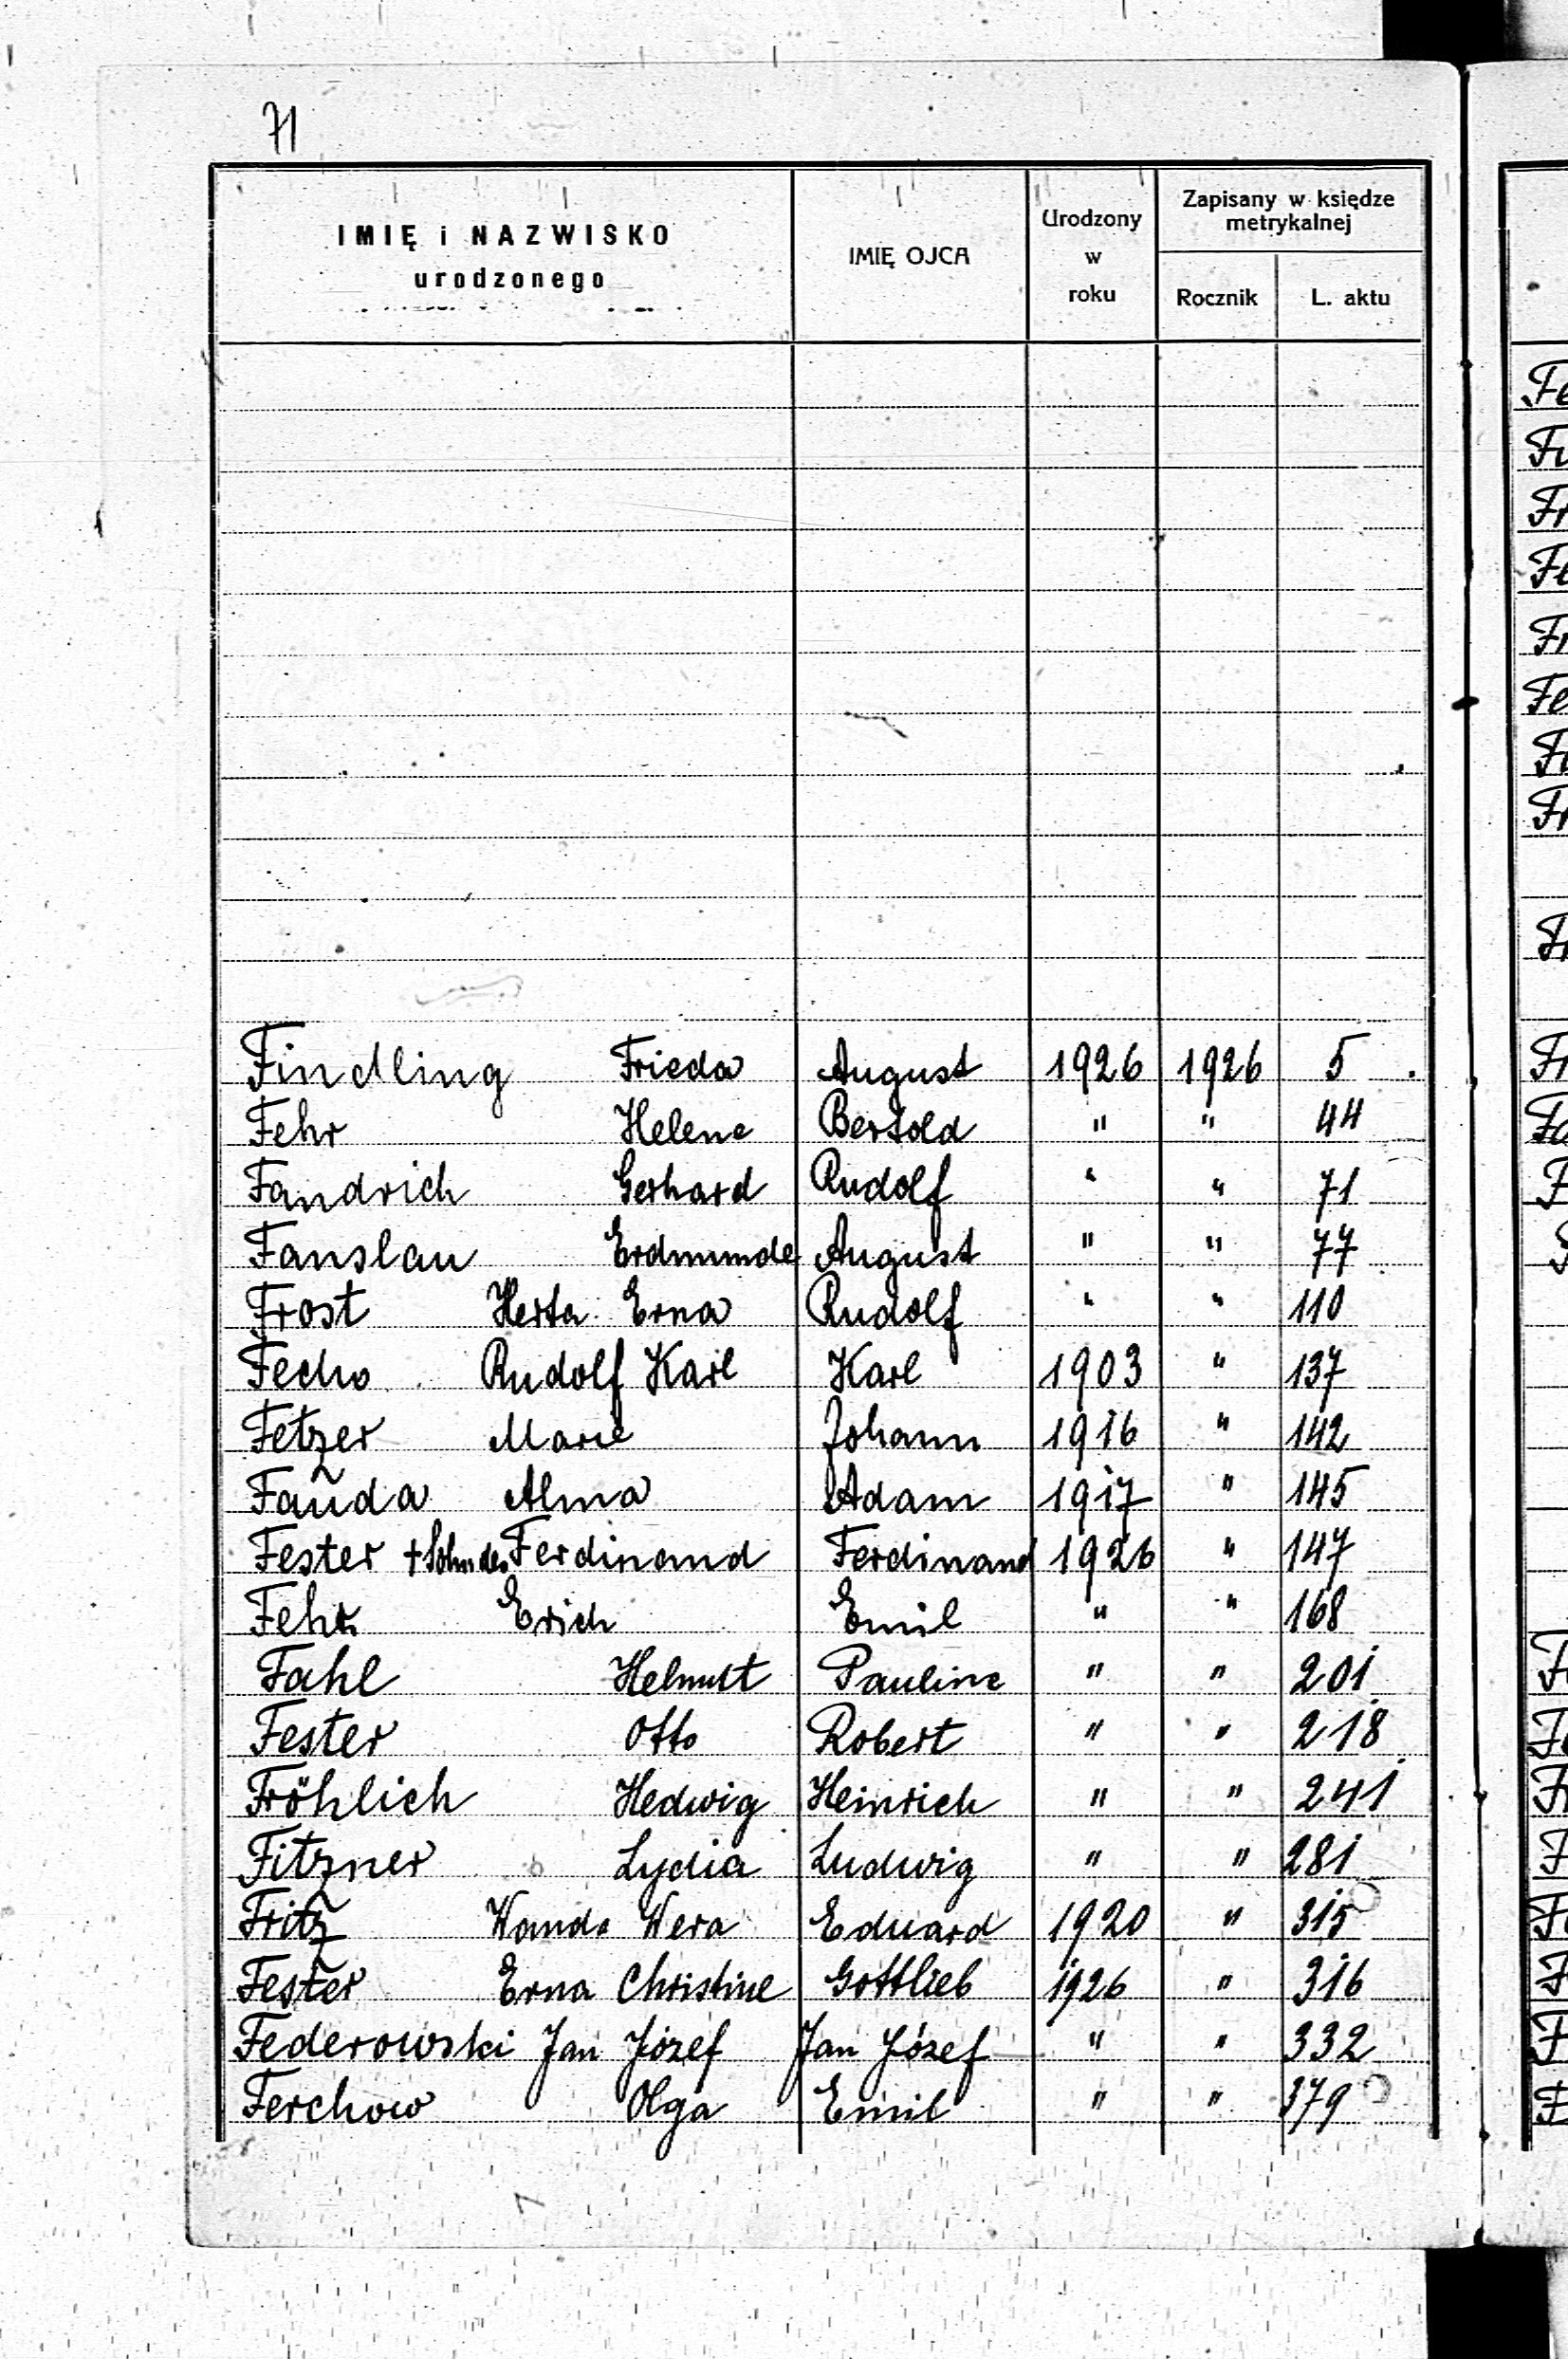 71
IMIĘ i NAZWISKO urodzonego IMIĘ OJCA Urodzony w roku Zapisany w księdze metrykalnej Rocznik L. aktu
Findling Frieda August 1926 1926 5
Fehr Helene Bertold " " 44
Fandrich Gerhard Rudolf " " 71
Fanslau Erdmunde August " " 77
Frost Herta Erna Rudolf " " 110
Fecho Rudolf Karl Karl 1903 " 137
Fetzer Marie Johann 1916 " 142
Fauda Alma Adam 1917 " 145
Fester † Sohn des Ferdinand Ferdinand 1926 " 147
Fehr Erich Emil " " 168
Fahl Helmutt Pauline " " 201
Fester Otto Robert " " 218
Fröhlich Hedwig Heinrich " " 241
Fitzner Lydia Ludwig " " 281
Fritz Wanda Wera Eduard 1920 " 315
Fester Erna Christine Gottlieb 1926 " 316
Federowski Jan Józef Jan Józef " " 332
Ferchow Olga Emil " " 379